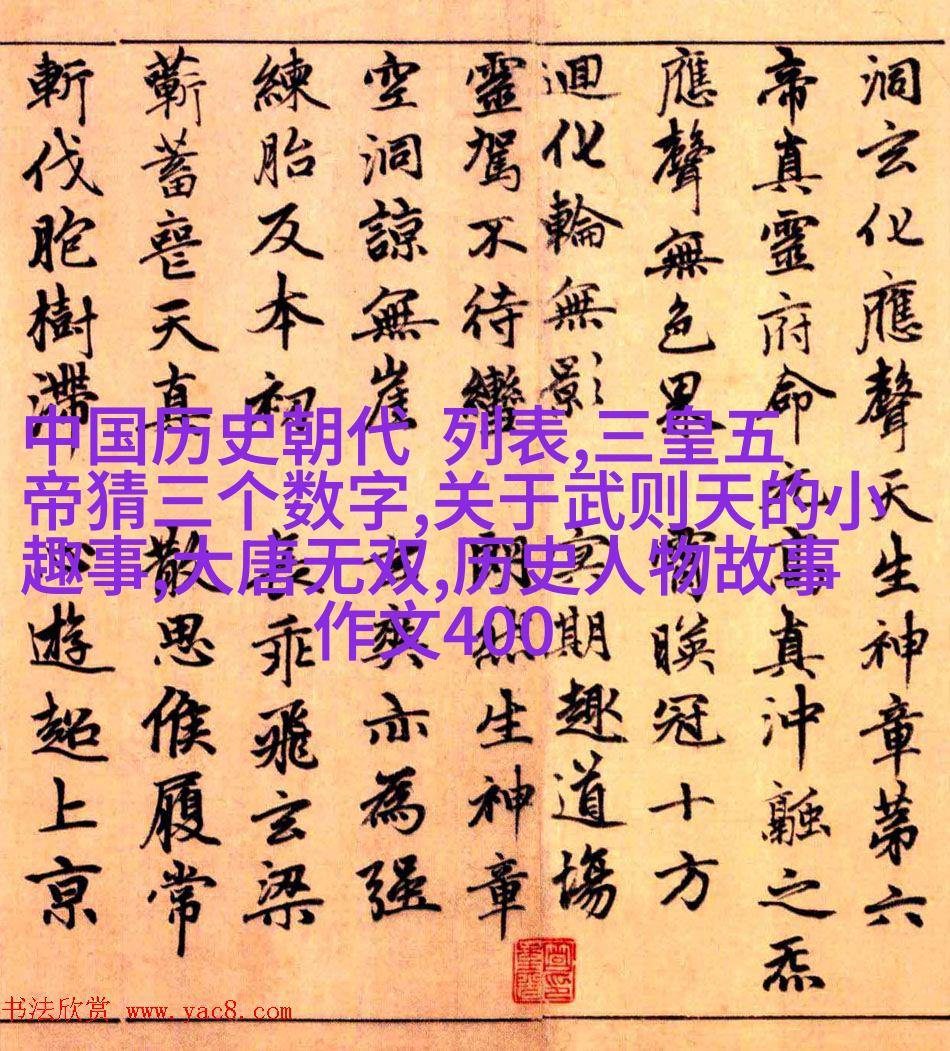 洞玄化應聲天生神章第六
帝真靈府命元高真沖融之炁
應聲無色界 霄映冠十方
迴化輪無影 冥期趣道場
靈駕不待轡 朗然生神章
空洞諒無崖 玄爽亦為强
練胎反本初 長乖飛玄梁
蘄蓄喪天真 散思候履常
斬伐胞樹滯 心遊超上京
中国历史朝代 列表,三皇五
帝猜三个数字,关于武则天的小
趣事,大唐无双,历史人物故事
作文400
书法欣赏 www.yac8.com